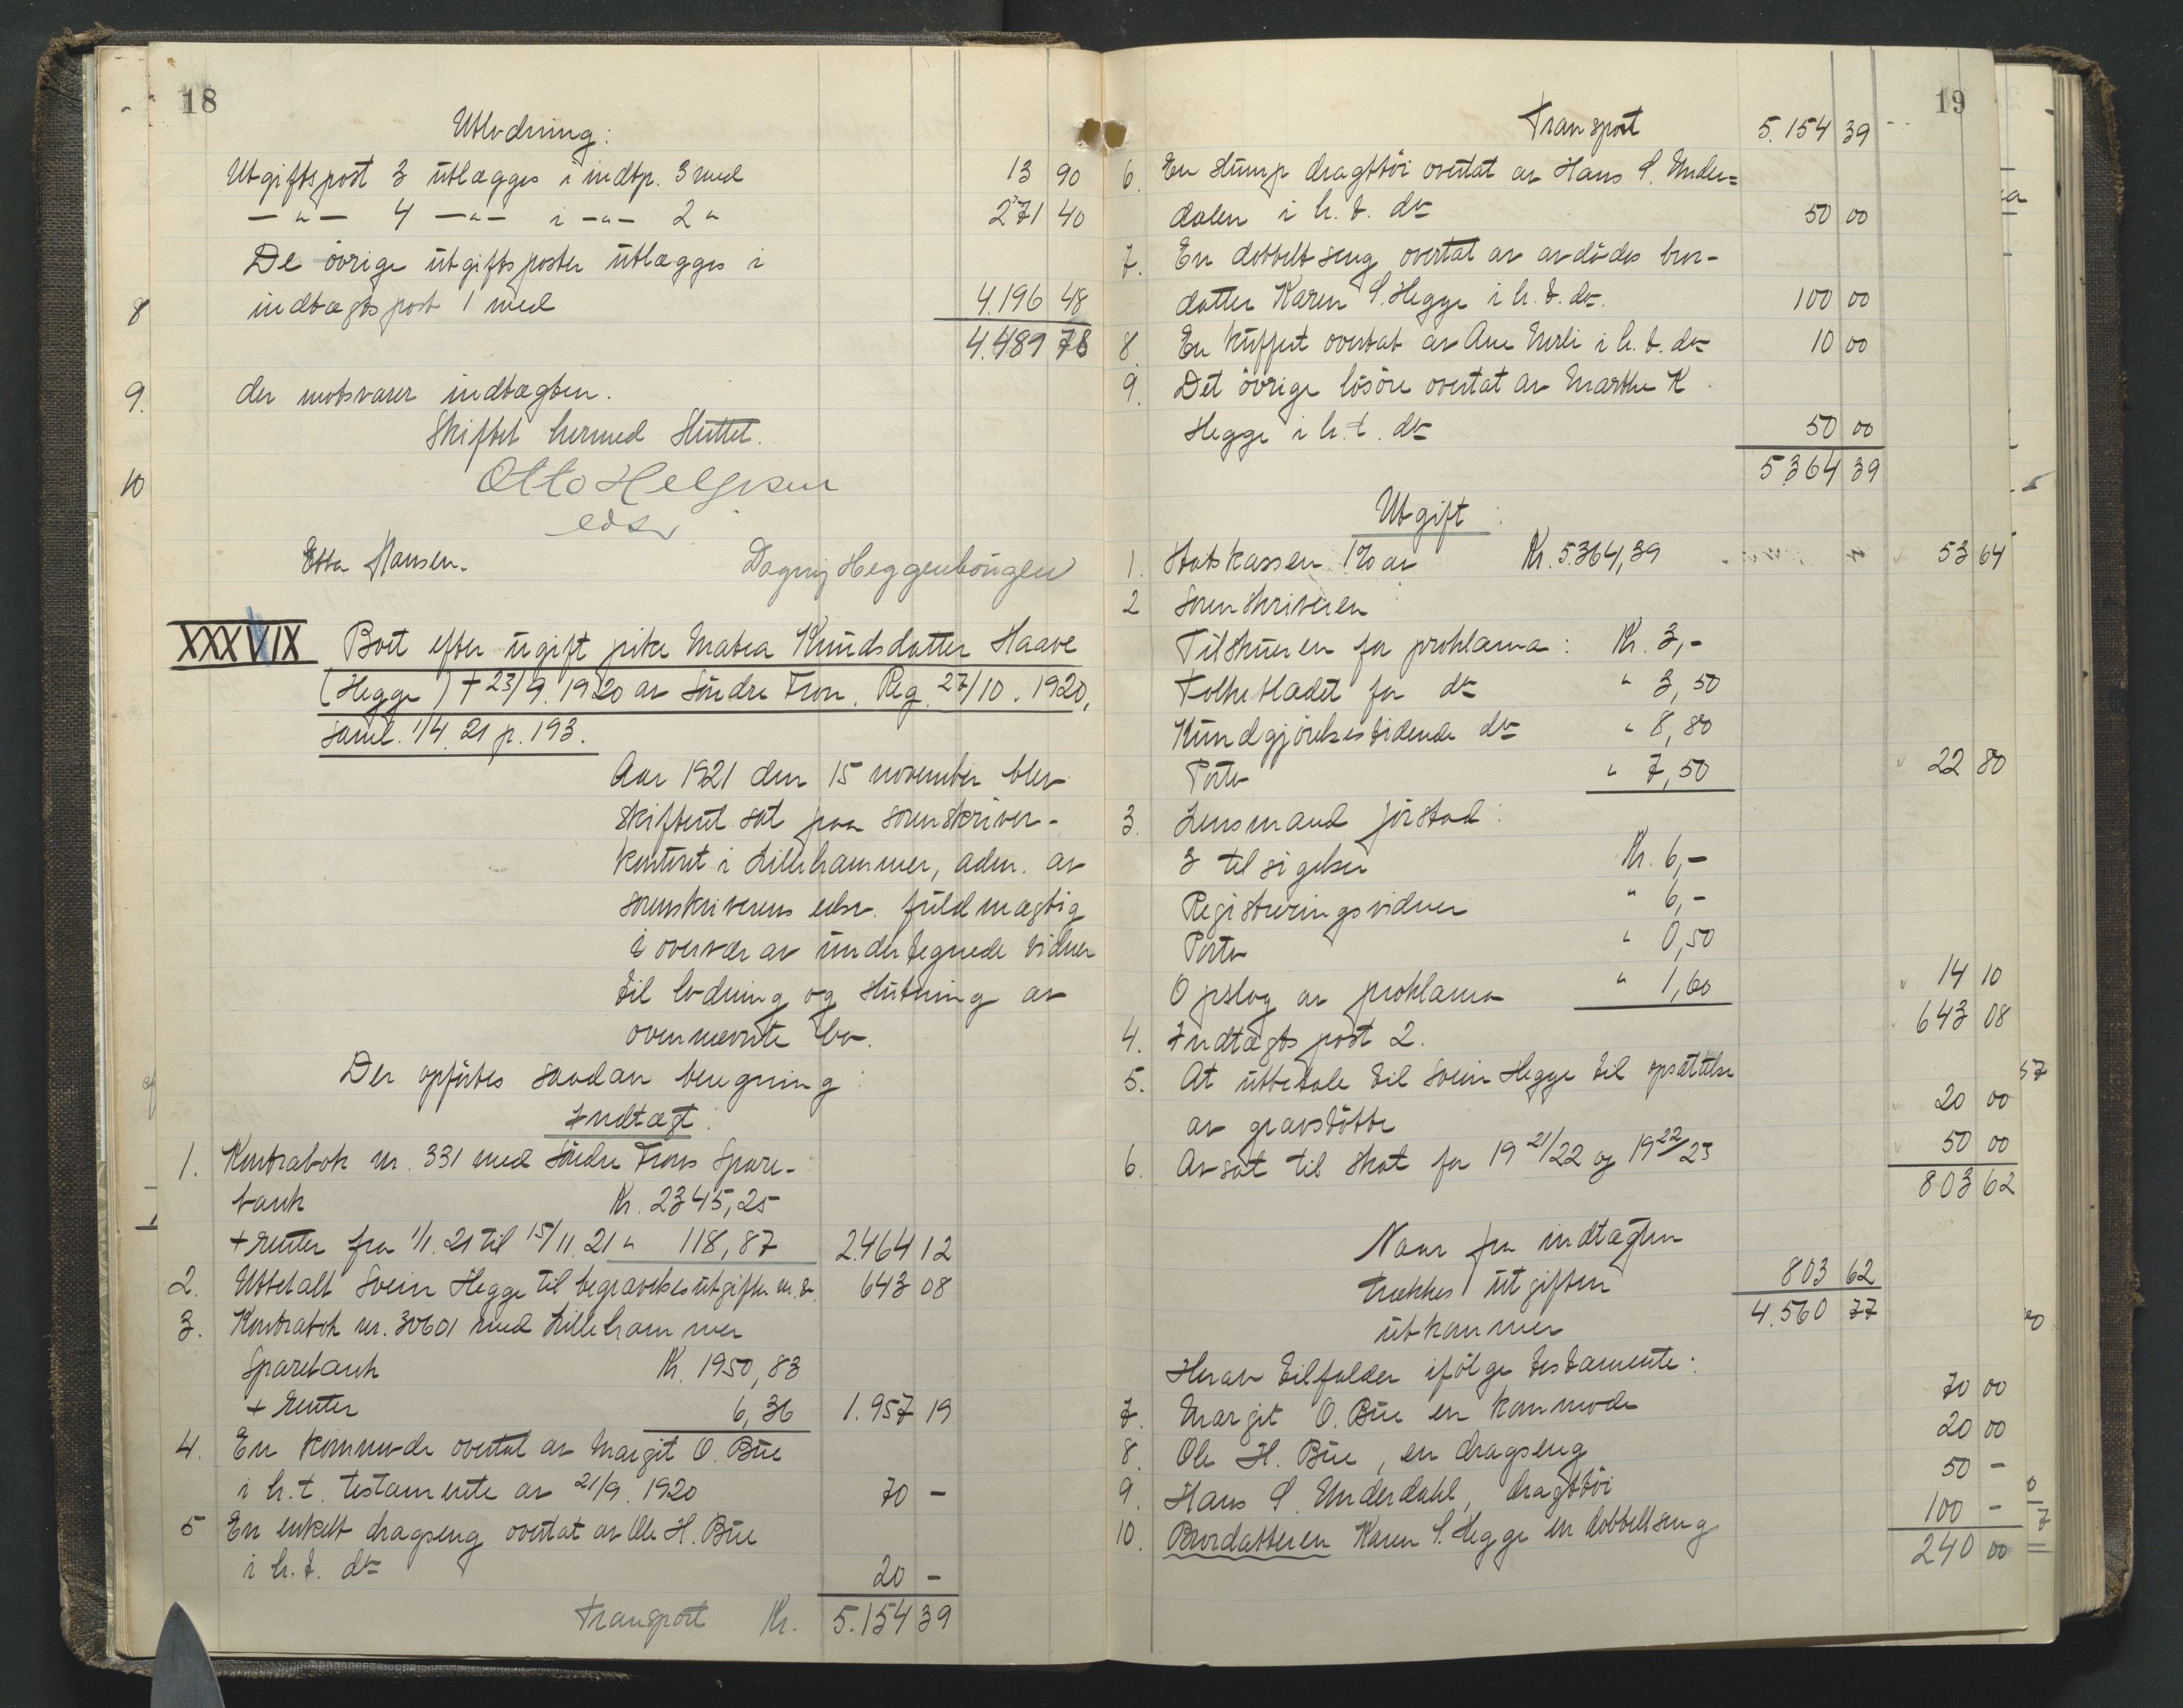 18
Utlodning:
Utgiftspost 3 utlægges i indtp. 3 med 13 90
— " — 4 — " — i — " — 2 " 271 40
De øvrige utgiftsposter utlægges i
8 indtægtspost 1 med 4.196 48
4.489 78
9. der motsvarer indtægten.
Skiftet hermed sluttet.
10
Otto Helgesen
edsv
Etta Hansen. Dagny Heggenhougen
XXXVIX Boet efter ugift pike Matea Knudsdatter Haave
(Hegge) + 23/9. 1920 av Søndre Fron. Reg. 27/10. 1920,
saml. 1/4 21 p. 193.
Aar 1921 den 15 november blev
skifteret sat paa sorenskriver-
kontoret i Lillehammer, adm. av
sorenskriverens edsv. fuldmægtig
i overvær av undertegnede vidner
til lodning og slutning av
ovennævnte bo.
Der opførtes saadan beregning:
Indtægt:
1. Kontrabok nr. 331 med Søndre Frons Spare-
bank Kr. 2345,25
+ renter fra 1/1. 21 til 15/11. 21 " 118,87 2464 12
2. Utbetalt Svein Hegge til begravelsesutgifter m.v. 643 08
3. Kontrabok nr. 30601 med Lillehammer
Sparebank Kr. 1950,83
+ renter 6,36 1.957 19
4. En kommode overtat av Margit O. Bue
i h. t. testamente av 21/9. 1920 70 –
5 En enkelt dragseng overtat av Ole H. Bue
i h. t. do 20 –
Transport Kr. 5.154 39
19
Transport 5.154 39
6. En stump dragttøi overtat av Hans S. Under=
dalen i h. t. do 50 00
7. En dobbeltseng overtat av avdødes bror-
datter Karen S. Hegge i h. t. do. 100 00
8 En kuffert overtat av Ane Nerli i h. t. do 10 00
9. Det øvrige løsøre overtat av Marthe K.
Hegge i h. t. do 50 00
5364 39
Utgift:
1. Statskassen 1% av Kr. 5364,39 53 64
2 Sorenskriveren
Tilskueren for proklama: Kr. 3,-
Folkebladet for do " 3,50
Kundgjørelsestidende do " 8,80
Porto " 7,50 22 80
3. Lensmand Jørstad:
3 tilsigelser Kr. 6,-
Registreringsvidner " 6,-
Porto " 0,50
Opslag av proklama " 1,60 14 10
4. Indtægtspost 2. 643 08
5. At utbetale til Svein Hegge til opsættelse
av gravstøtte 20 00
6. Avsat til skat for 19 21/22 og 19 22/23 50 00
803 62
Naar fra indtægten
trækkes utgiften 803 62
utkommer 4.560 77
Herav tilfalder ifølge testamente:
7. Margit O. Bue en kommode 70 00
8. Ole H. Bue, en dragseng 20 00
9. Hans S. Underdahl, dragttøi 50 –
10. Brordatteren Karen S. Hegge en dobbeltseng 100 –
240 00